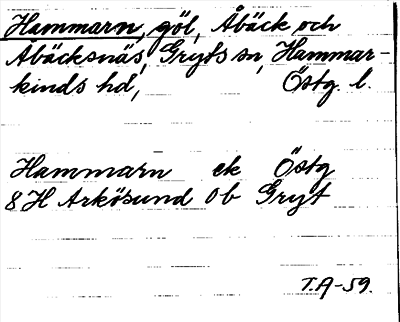 Hammarn, göl, Åbäck och
Åbäcksnäs, Gryts sn, Hammar-
kinds hd, Östg. l.
Hammarn ek Östg
8 H Arkösund 0 b Gryt
T.A-59.